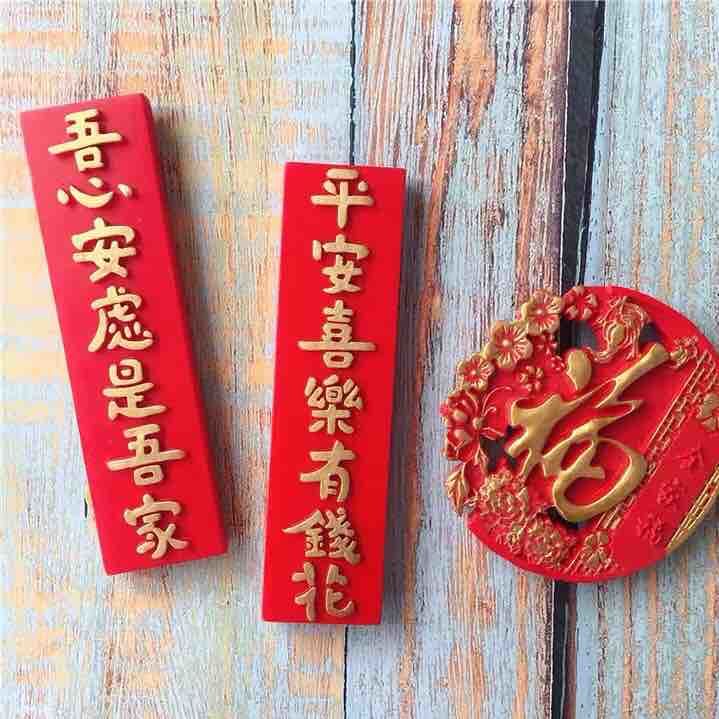 吾心安處是吾家
平安喜樂有錢花
福